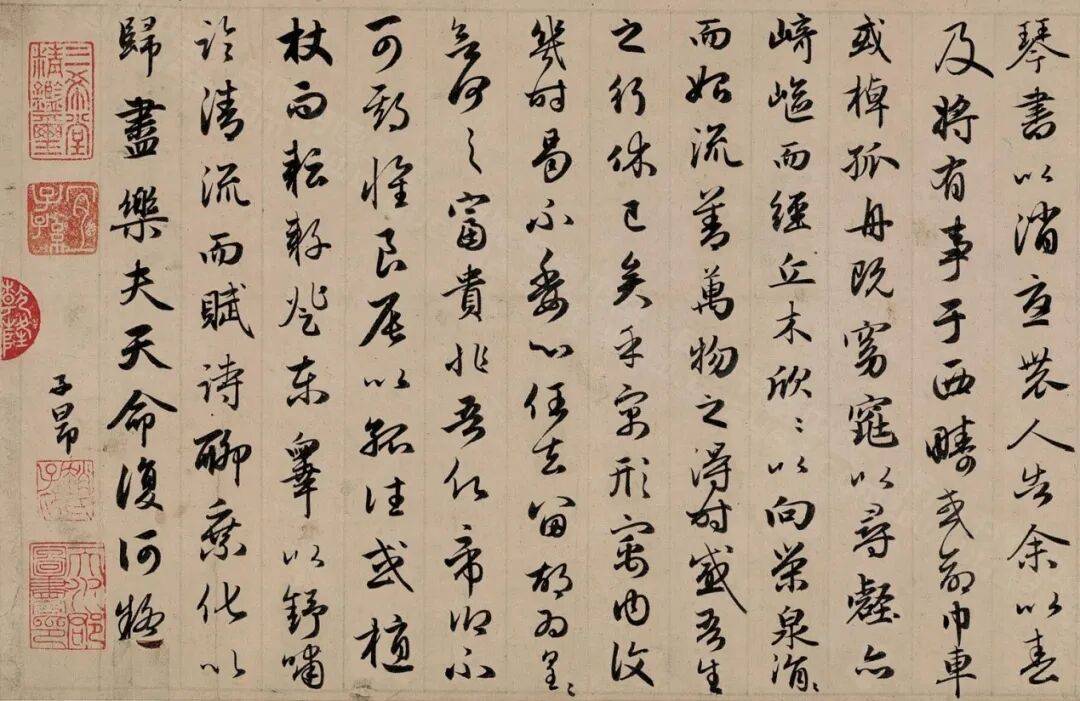 琴書以消憂農人告余以春
及將有事于西疇或命巾車
或棹孤舟既窈窕以尋壑亦
崎嶇而經丘木欣〻以向榮泉涓〻
而始流善萬物之得時感吾生
之行休已矣乎寓形寓內復
幾時曷不委心任去留胡為皇〻
何之富貴非吾願帝鄉不
可期懷良辰以孤往或植
杖而耘耔登東皋以舒嘯
臨清流而賦詩聊乘化以
歸盡樂夫天命復何疑
子昂
三希堂精鑒璽
宜子孫
乾隆